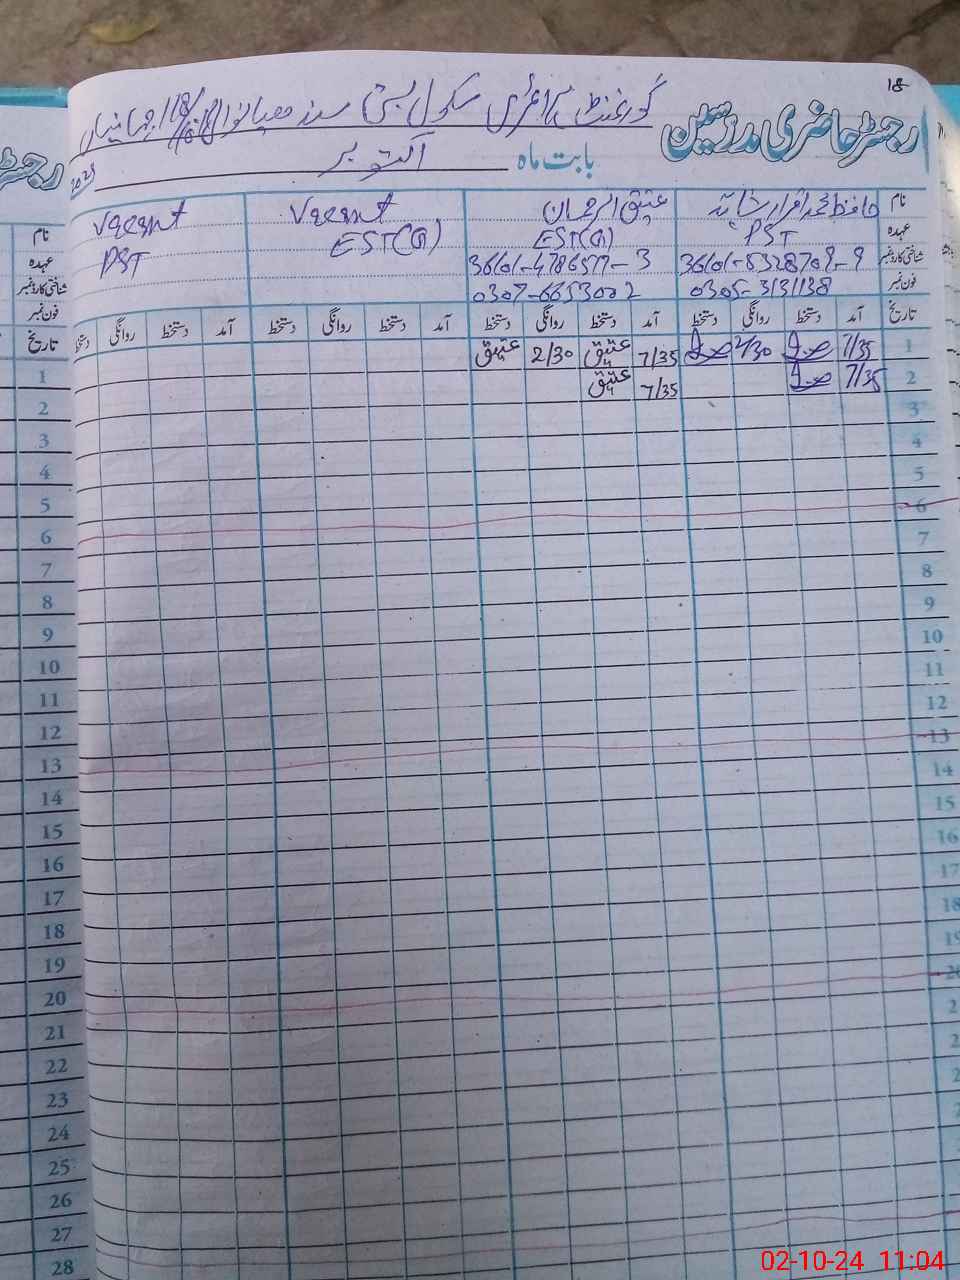 18
رجسٹر حاضری مدرسین
گورنمنٹ پرائمری سکول بستی
بابت ماہ اکتوبر
نام
عتیق الرحمان
Vacant
Vacant
عہدہ
PST
EST(G)
EST(G)
PST
شناختی کارڈ نمبر
36101-5328708-9
36101-4786577-3
فون نمبر
0305-3131138
0307-6653002
تاریخ آمد دستخط روانگی دستخط آمد دستخط روانگی دستخط آمد دستخط روانگی دستخط آمد دستخط روانگی دستخط
1 7/35 2/30 7/35 عتیق 2/30 عتیق
2 7/35 7/35 عتیق
3
4
5
6
7
8
9
10
11
12
13
14
15
16
17
18
19
20
نام
عہدہ
شناختی کارڈ نمبر
فون نمبر
تاریخ
1
2
3
4
5
6
7
8
9
10
11
12
13
14
15
16
17
18
19
20
21
22
23
24
25
26
27
28
02-10-24 11:04